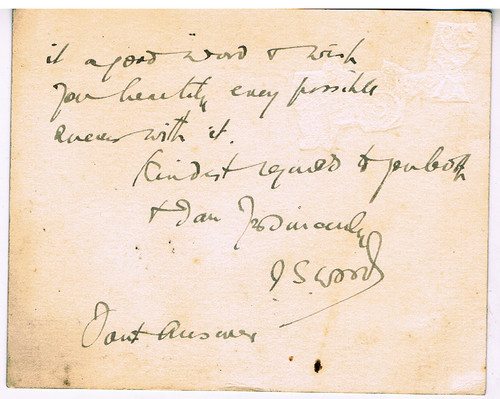 it a good word & wish
you heartily every possible
success with it.
Kindest regards to you both
& I am Yrs Sincerely
J S Wood
Dont Answer